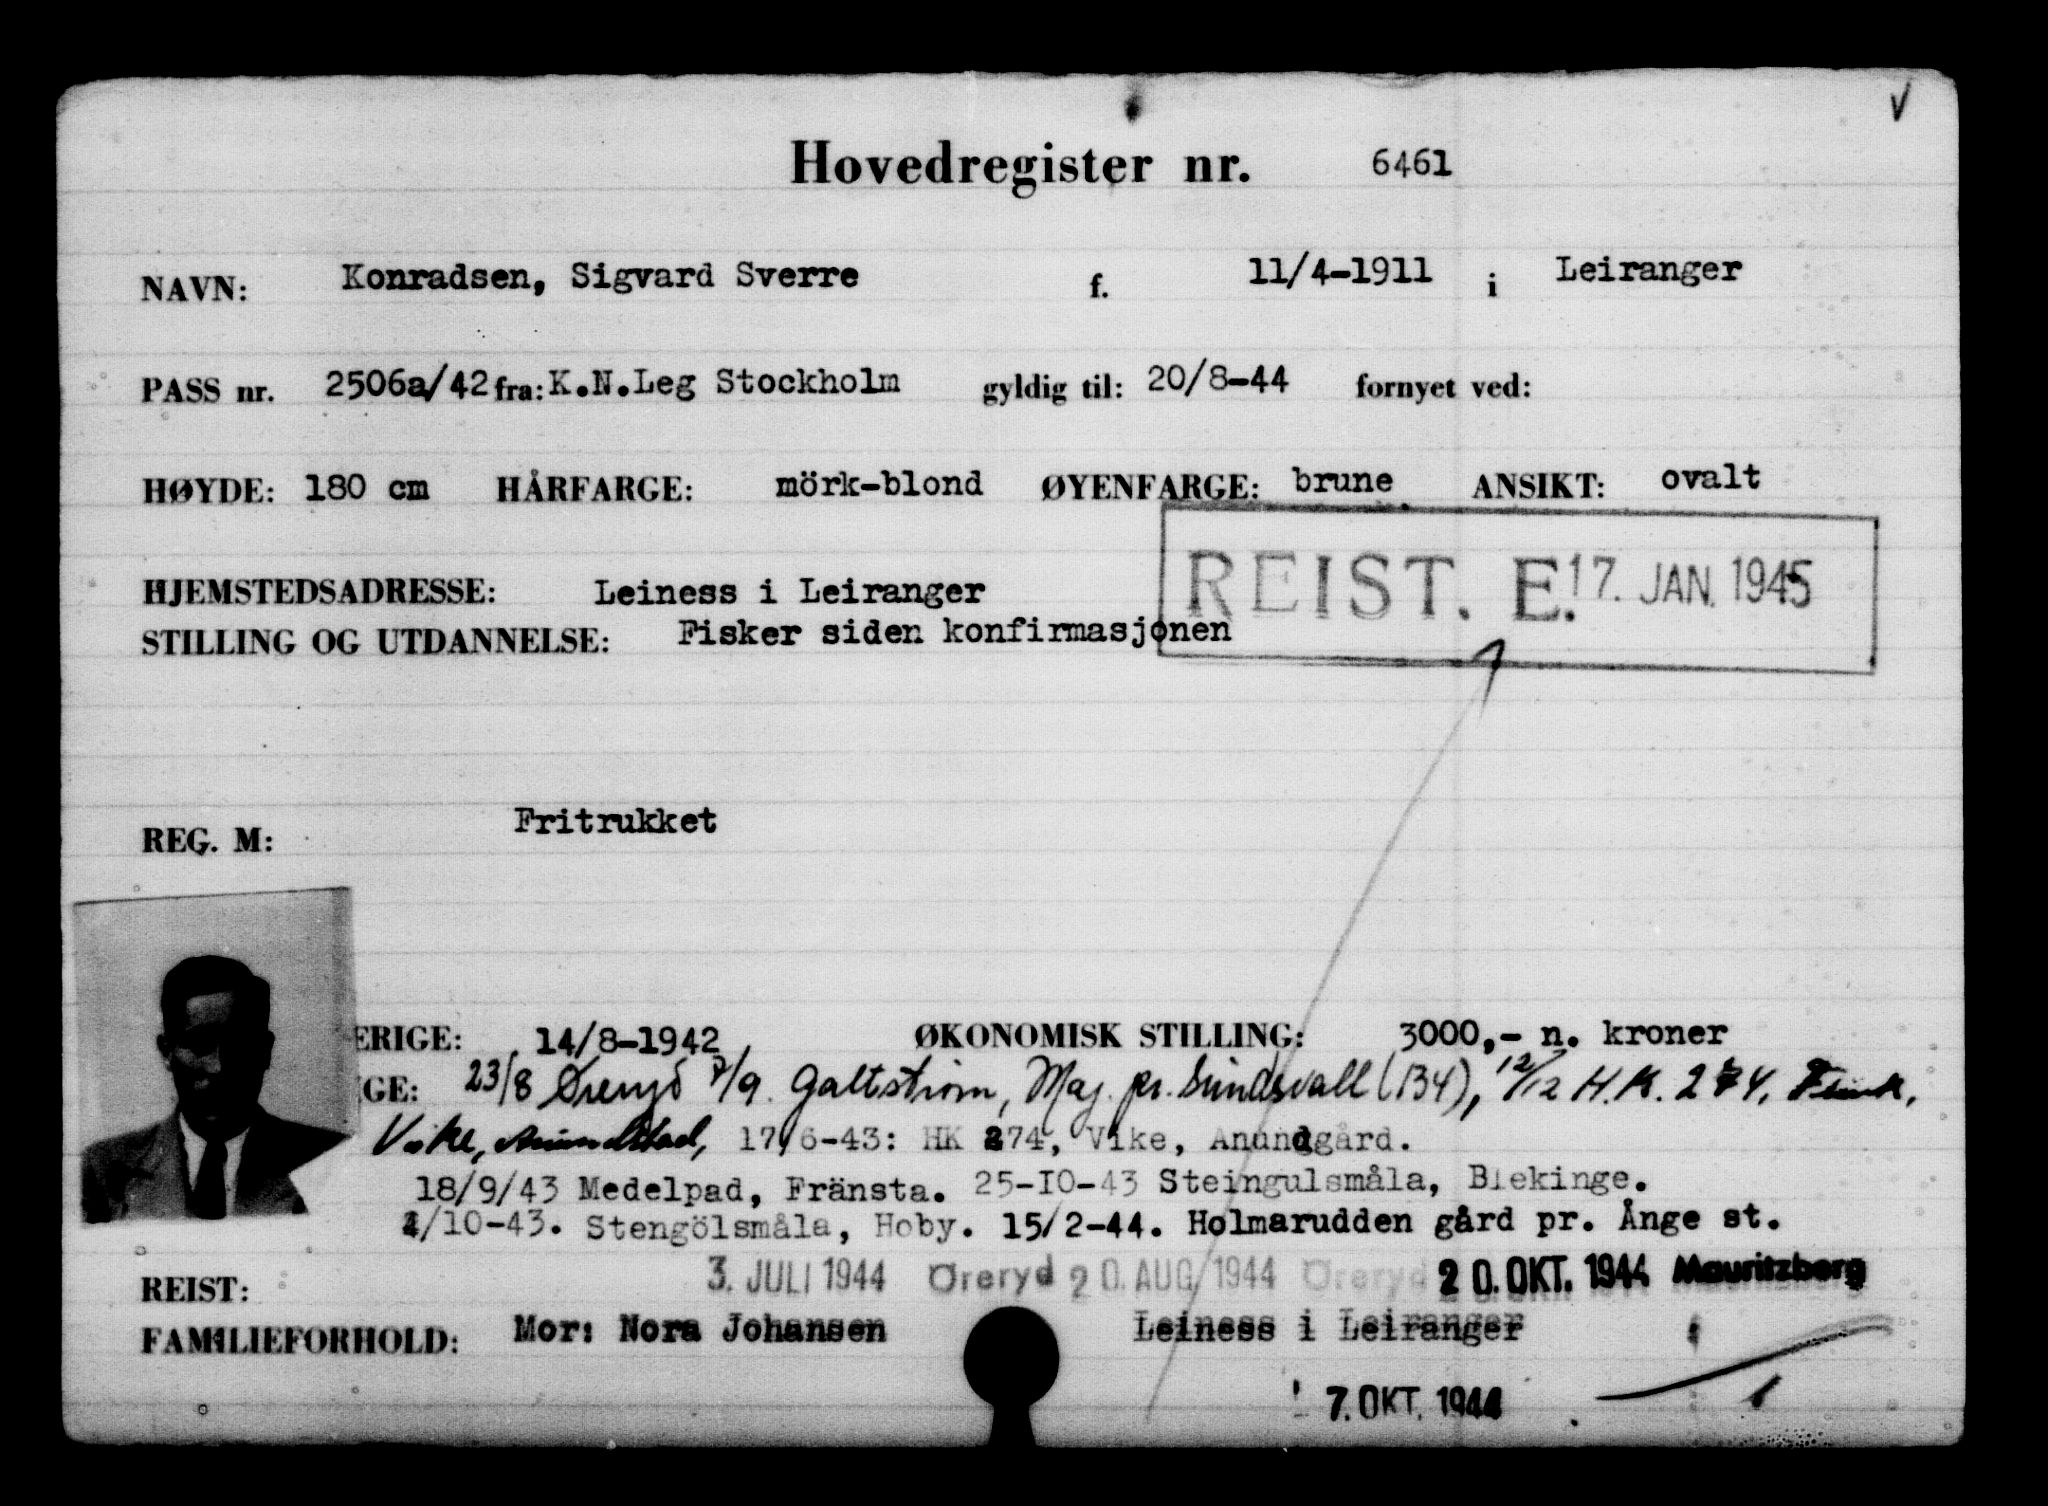 Hovedregister nr. 6461
NAVN: Konradsen, Sigvard Sverre f. 11/4-1911 i Leiranger
PASS nr. 2506a/42 fra: K.N.Leg Stockholm gyldig til: 20/8-44 fornyet ved:
HØYDE: 180 cm HÅRFARGE: mörk-blond ØYENFARGE: brune ANSIKT: ovalt
REIST. E. 17. JAN. 1945
HJEMSTEDSADRESSE: Leiness i Leiranger
STILLING OG UTDANNELSE: Fisker siden konfirmasjonen
REG. M: Fritrukket
ERIGE: 14/8-1942 ØKONOMISK STILLING: 3000,- n. kroner
IGE: 23/8 Øreryd 7/9. Galtström, Maj. pr. Sundsvall (134), 12/12 H.K. 274,
Vike, 17/6-43: HK 274, Vike, Anundgård.
18/9/43 Medelpad, Fränsta. 25-10-43 Steingulsmåla, Blekinge.
/10-43. Stengölsmåla, Hoby. 15/2-44. Holmarudden gård pr. Ånge st.
REIST: 3. JULI 1944 Øreryd 20. AUG. 1944 Øreryd 20. OKT. 1944 Mauritzberg
FAMILIEFORHOLD: Mor: Nora Johansen Leiness i Leiranger
7. OKT. 1944